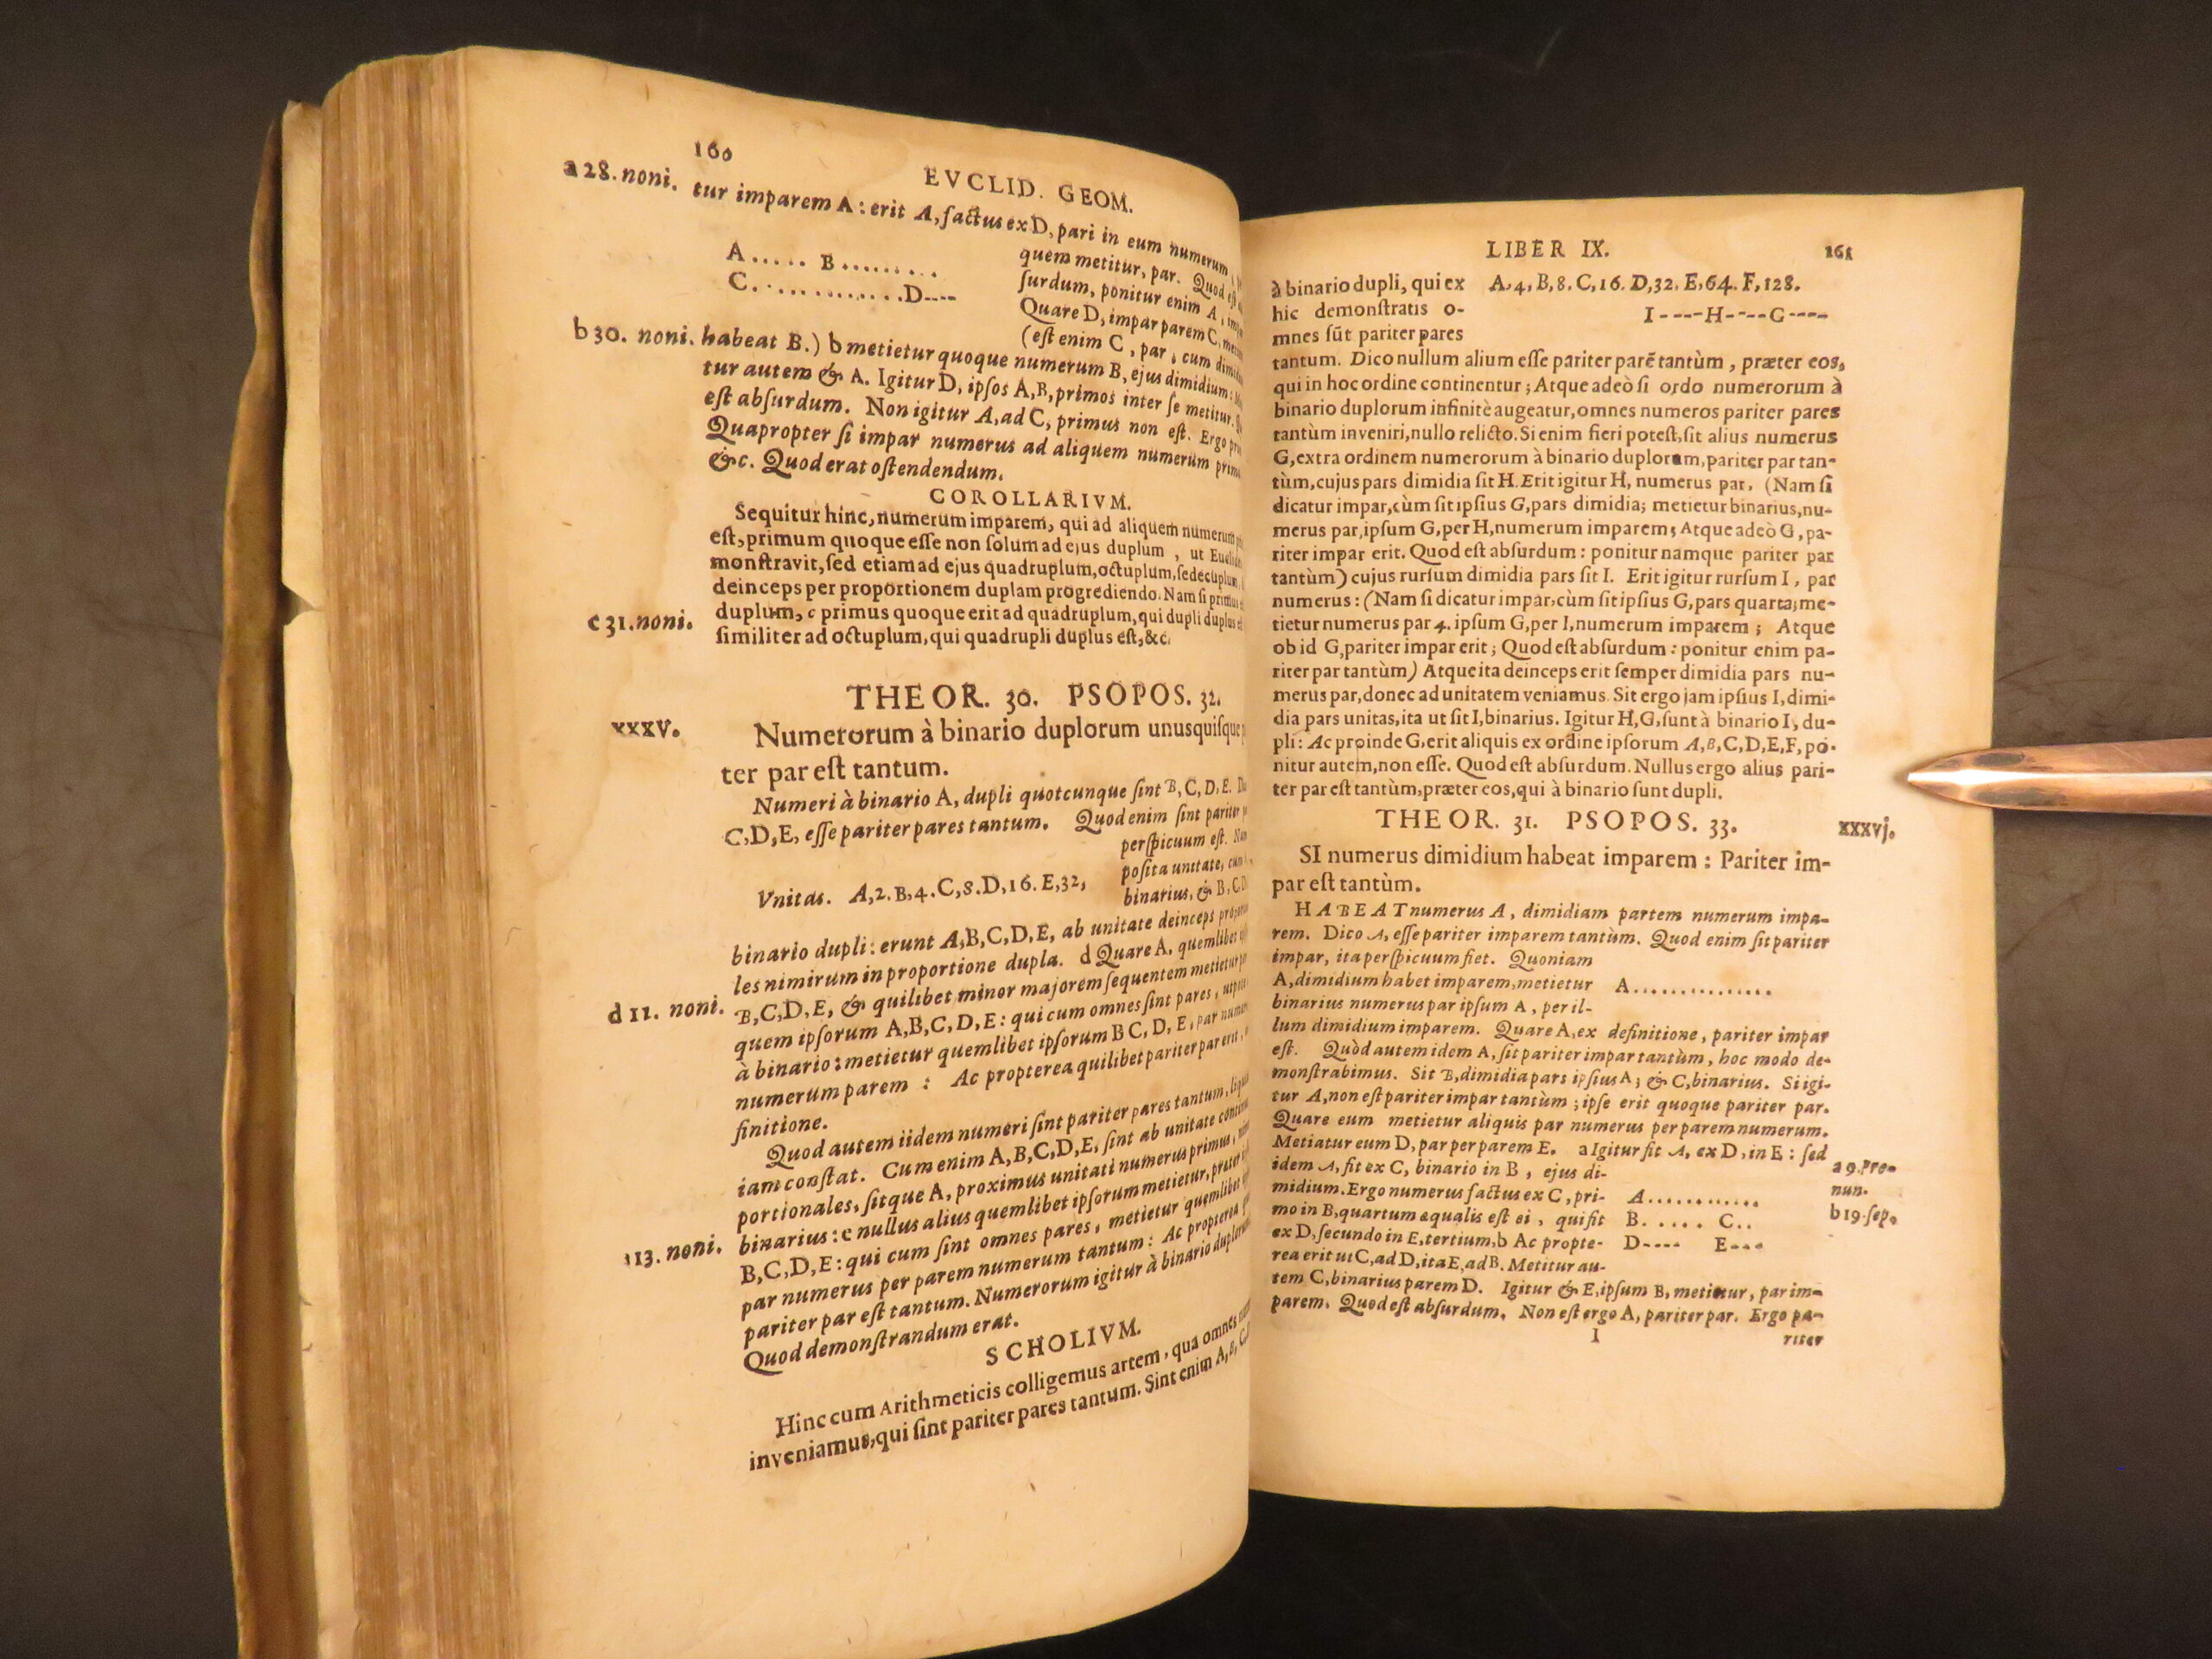 160
EVCLID. GEOM.
a 28. noni.
tur imparem A : erit A, factus ex D, pari in eum numerum
quem metitur, par. Quod est
A..... B.........
surdum, ponitur enim A,
C..............D----
Quare D, impar parem C,
(est enim C, par, cum
b 30. noni.
habeat B.) b metietur quoque numerum B, ejus dimidium:
tur autem & A. Igitur D, ipsos A, B, primos inter se metitur.
est absurdum. Non igitur A, ad C, primus non est. Ergo
Quapropter si impar numerus ad aliquem numerum
&c. Quod erat ostendendum.
COROLLARIVM.
Sequitur hinc, numerum imparem, qui ad aliquem numerum
est, primum quoque esse non solum ad ejus duplum, ut
monstravit, sed etiam ad ejus quadruplum, octuplum, sedecuplum,
deinceps per proportionem duplam progrediendo. Nam si
c 31. noni.
duplum, c primus quoque erit ad quadruplum, qui dupli duplus
similiter ad octuplum, qui quadrupli duplus est, &c.
THEOR. 30. PSOPOS. 32.
xxxv.
Numerorum à binario duplorum unusquisque
ter par est tantum.
Numeri à binario A, dupli quotcunque sint B, C, D, E.
C, D, E, esse pariter pares tantum. Quod enim sint pariter
perspicuum est.
posita unitate,
Vnitas. A, 2. B, 4. C, 8. D, 16. E, 32,
binarius, & B, C,
binario dupli: erunt A, B, C, D, E, ab unitate deinceps
les nimirum in proportione dupla. d Quare A, quemlibet
d 11. noni.
B, C, D, E, & quilibet minor majorem sequentem metietur
quem ipsorum A, B, C, D, E: qui cum omnes sint pares,
à binario: metietur quemlibet ipsorum B C, D, E, par
numerum parem : Ac propterea quilibet pariter par erit,
finitione.
Quod autem iidem numeri sint pariter pares tantum,
iam constat. Cum enim A, B, C, D, E, sint ab unitate
portionales, sitque A, proximus unitati numerus primus,
113. noni.
binarius: e nullus alius quemlibet ipsorum metietur,
B, C, D, E: qui cum sint omnes pares, metietur quemlibet
par numerus per parem numerum tantum: Ac propterea
pariter par est tantum. Numerorum igitur à binario
Quod demonstrandum erat.
SCHOLIVM.
Hinc cum Arithmeticis colligemus artem, qua omnes
inveniamus, qui sint pariter pares tantum. Sint enim A, B,
LIBER IX.
161
à binario dupli, qui ex
A, 4, B, 8. C, 16. D, 32. E, 64. F, 128.
hic demonstratis o-
I----H----G----
mnes sūt pariter pares
tantum. Dico nullum alium esse pariter parē tantùm, præter eos,
qui in hoc ordine continentur; Atque adeò si ordo numerorum à
binario duplorum infinitè augeatur, omnes numeros pariter pares
tantùm inveniri, nullo relicto. Si enim fieri potest, sit alius numerus
G, extra ordinem numerorum à binario duplorum, pariter par tan-
tùm, cujus pars dimidia sit H. Erit igitur H, numerus par. (Nam si
dicatur impar, cùm sit ipsius G, pars dimidia; metietur binarius, nu-
merus par, ipsum G, per H, numerum imparem; Atque adeò G, pa-
riter impar erit. Quod est absurdum: ponitur namque pariter par
tantùm) cujus rursum dimidia pars sit I. Erit igitur rursum I, par
numerus: (Nam si dicatur impar, cùm sit ipsius G, pars quarta; me-
tietur numerus par 4. ipsum G, per I, numerum imparem; Atque
ob id G, pariter impar erit; Quod est absurdum: ponitur enim pa-
riter par tantùm) Atque ita deinceps erit semper dimidia pars nu-
merus par, donec ad unitatem veniamus. Sit ergo jam ipsius I, dimi-
dia pars unitas, ita ut sit I, binarius. Igitur H, G, sunt à binario I, du-
pli: Ac proinde G, erit aliquis ex ordine ipsorum A, B, C, D, E, F, po-
nitur autem, non esse. Quod est absurdum. Nullus ergo alius pari-
ter par est tantùm, præter eos, qui à binario sunt dupli.
THEOR. 31. PSOPOS. 33.
xxxvj.
SI numerus dimidium habeat imparem: Pariter im-
par est tantùm.
HABEAT numerus A, dimidiam partem numerum impa-
rem. Dico A, esse pariter imparem tantùm. Quod enim sit pariter
impar, ita perspicuum fiet. Quoniam
A, dimidium habet imparem, metietur
A...............
binarius numerus par ipsum A, per il-
lum dimidium imparem. Quare A, ex definitione, pariter impar
est. Quòd autem idem A, sit pariter impar tantùm, hoc modo de-
monstrabimus. Sit B, dimidia pars ipsius A; & C, binarius. Si igi-
tur A, non est pariter impar tantùm; ipse erit quoque pariter par.
Quare eum metietur aliquis par numerus per parem numerum.
Metiatur eum D, par per parem E. a Igitur fit A, ex D, in E: sed
a 9. Pro-
nun.
idem A, fit ex C, binario in B, ejus di-
midium. Ergo numerus factus ex C, pri-
A............
mo in B, quartum æqualis est ei, qui fit
B...... C..
b 19. sep.
ex D, secundo in E, tertium, b Ac propte-
D---- E---
rea erit ut C, ad D, ita E, ad B. Metitur au-
tem C, binarius parem D. Igitur & E, ipsum B, metietur, par im-
parem. Quod est absurdum. Non est ergo A, pariter par. Ergo pa-
I
riter